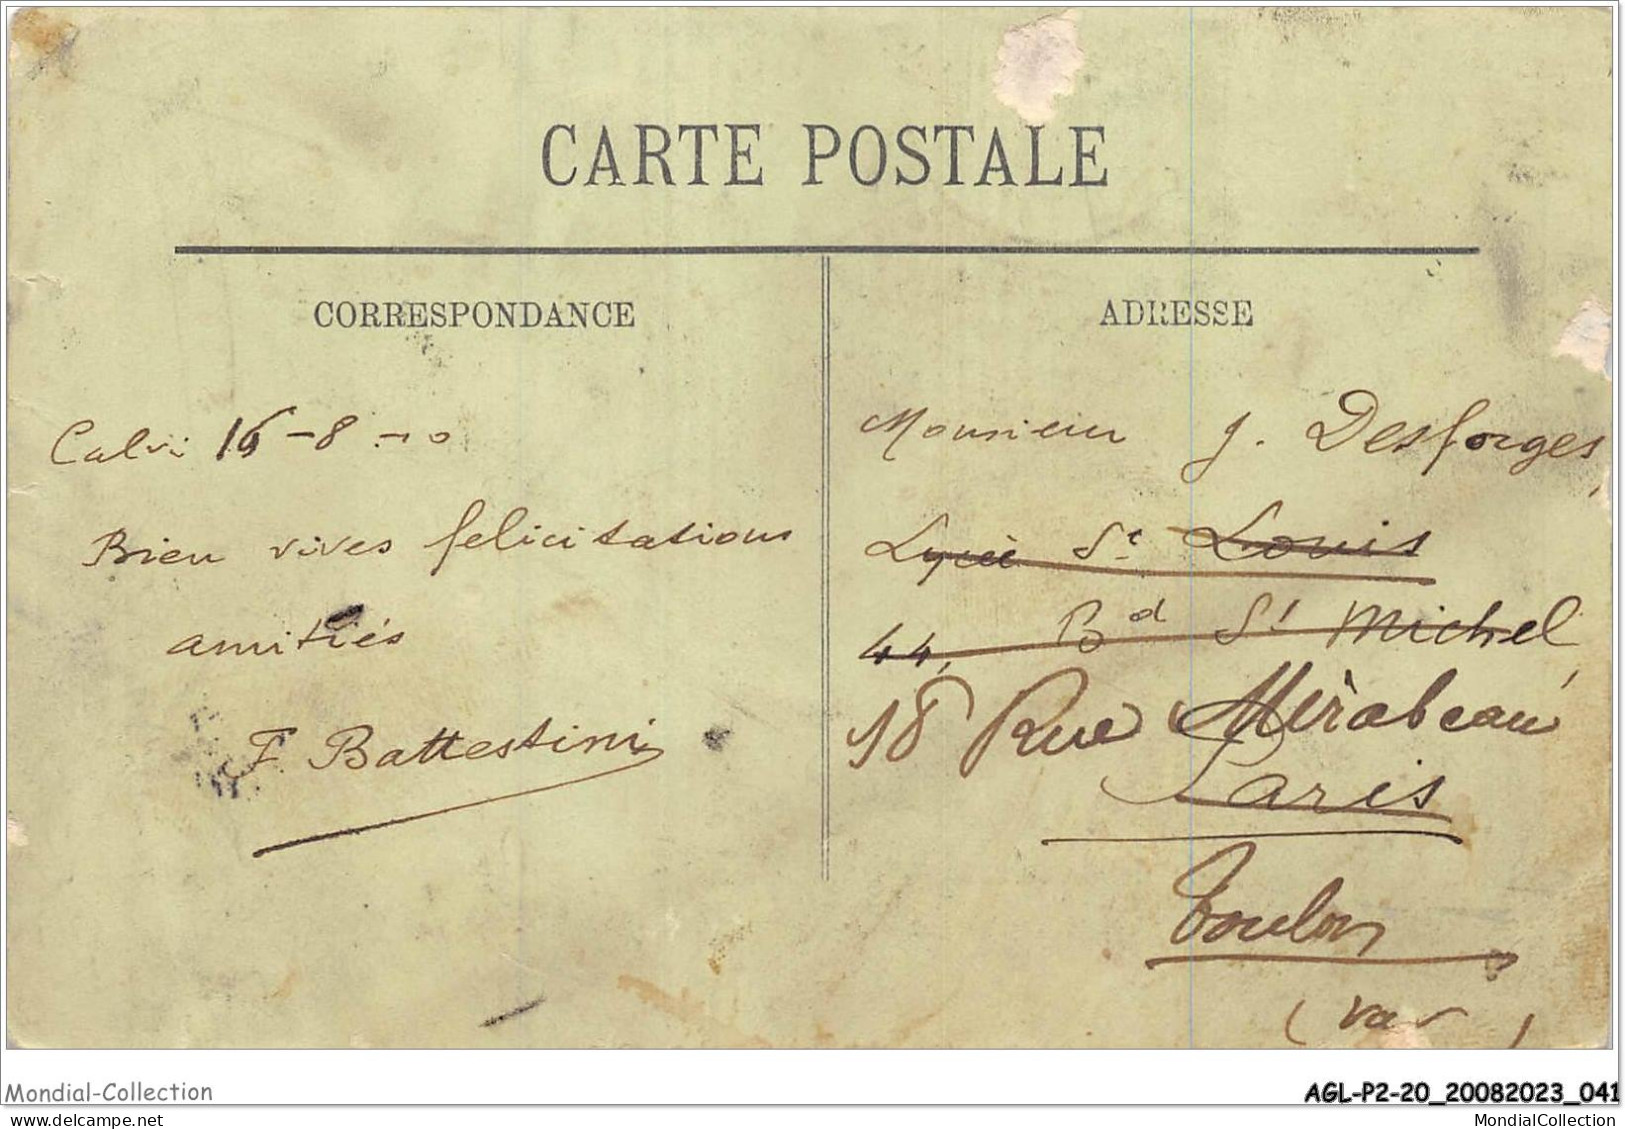 CARTE POSTALE
CORRESPONDANCE
Calvi 16-8-10
Bien vives felicitations
amitiés
F Battestini
ADRESSE
Monsieur J. Desforges,
Lycée St Louis
44, Bd St Michel,
18 Rue Mirabeau
Paris
Toulon
(Var)
Mondial-Collection
AGL-P2-20_20082023_041
MondialCollection.net
MondialCollection